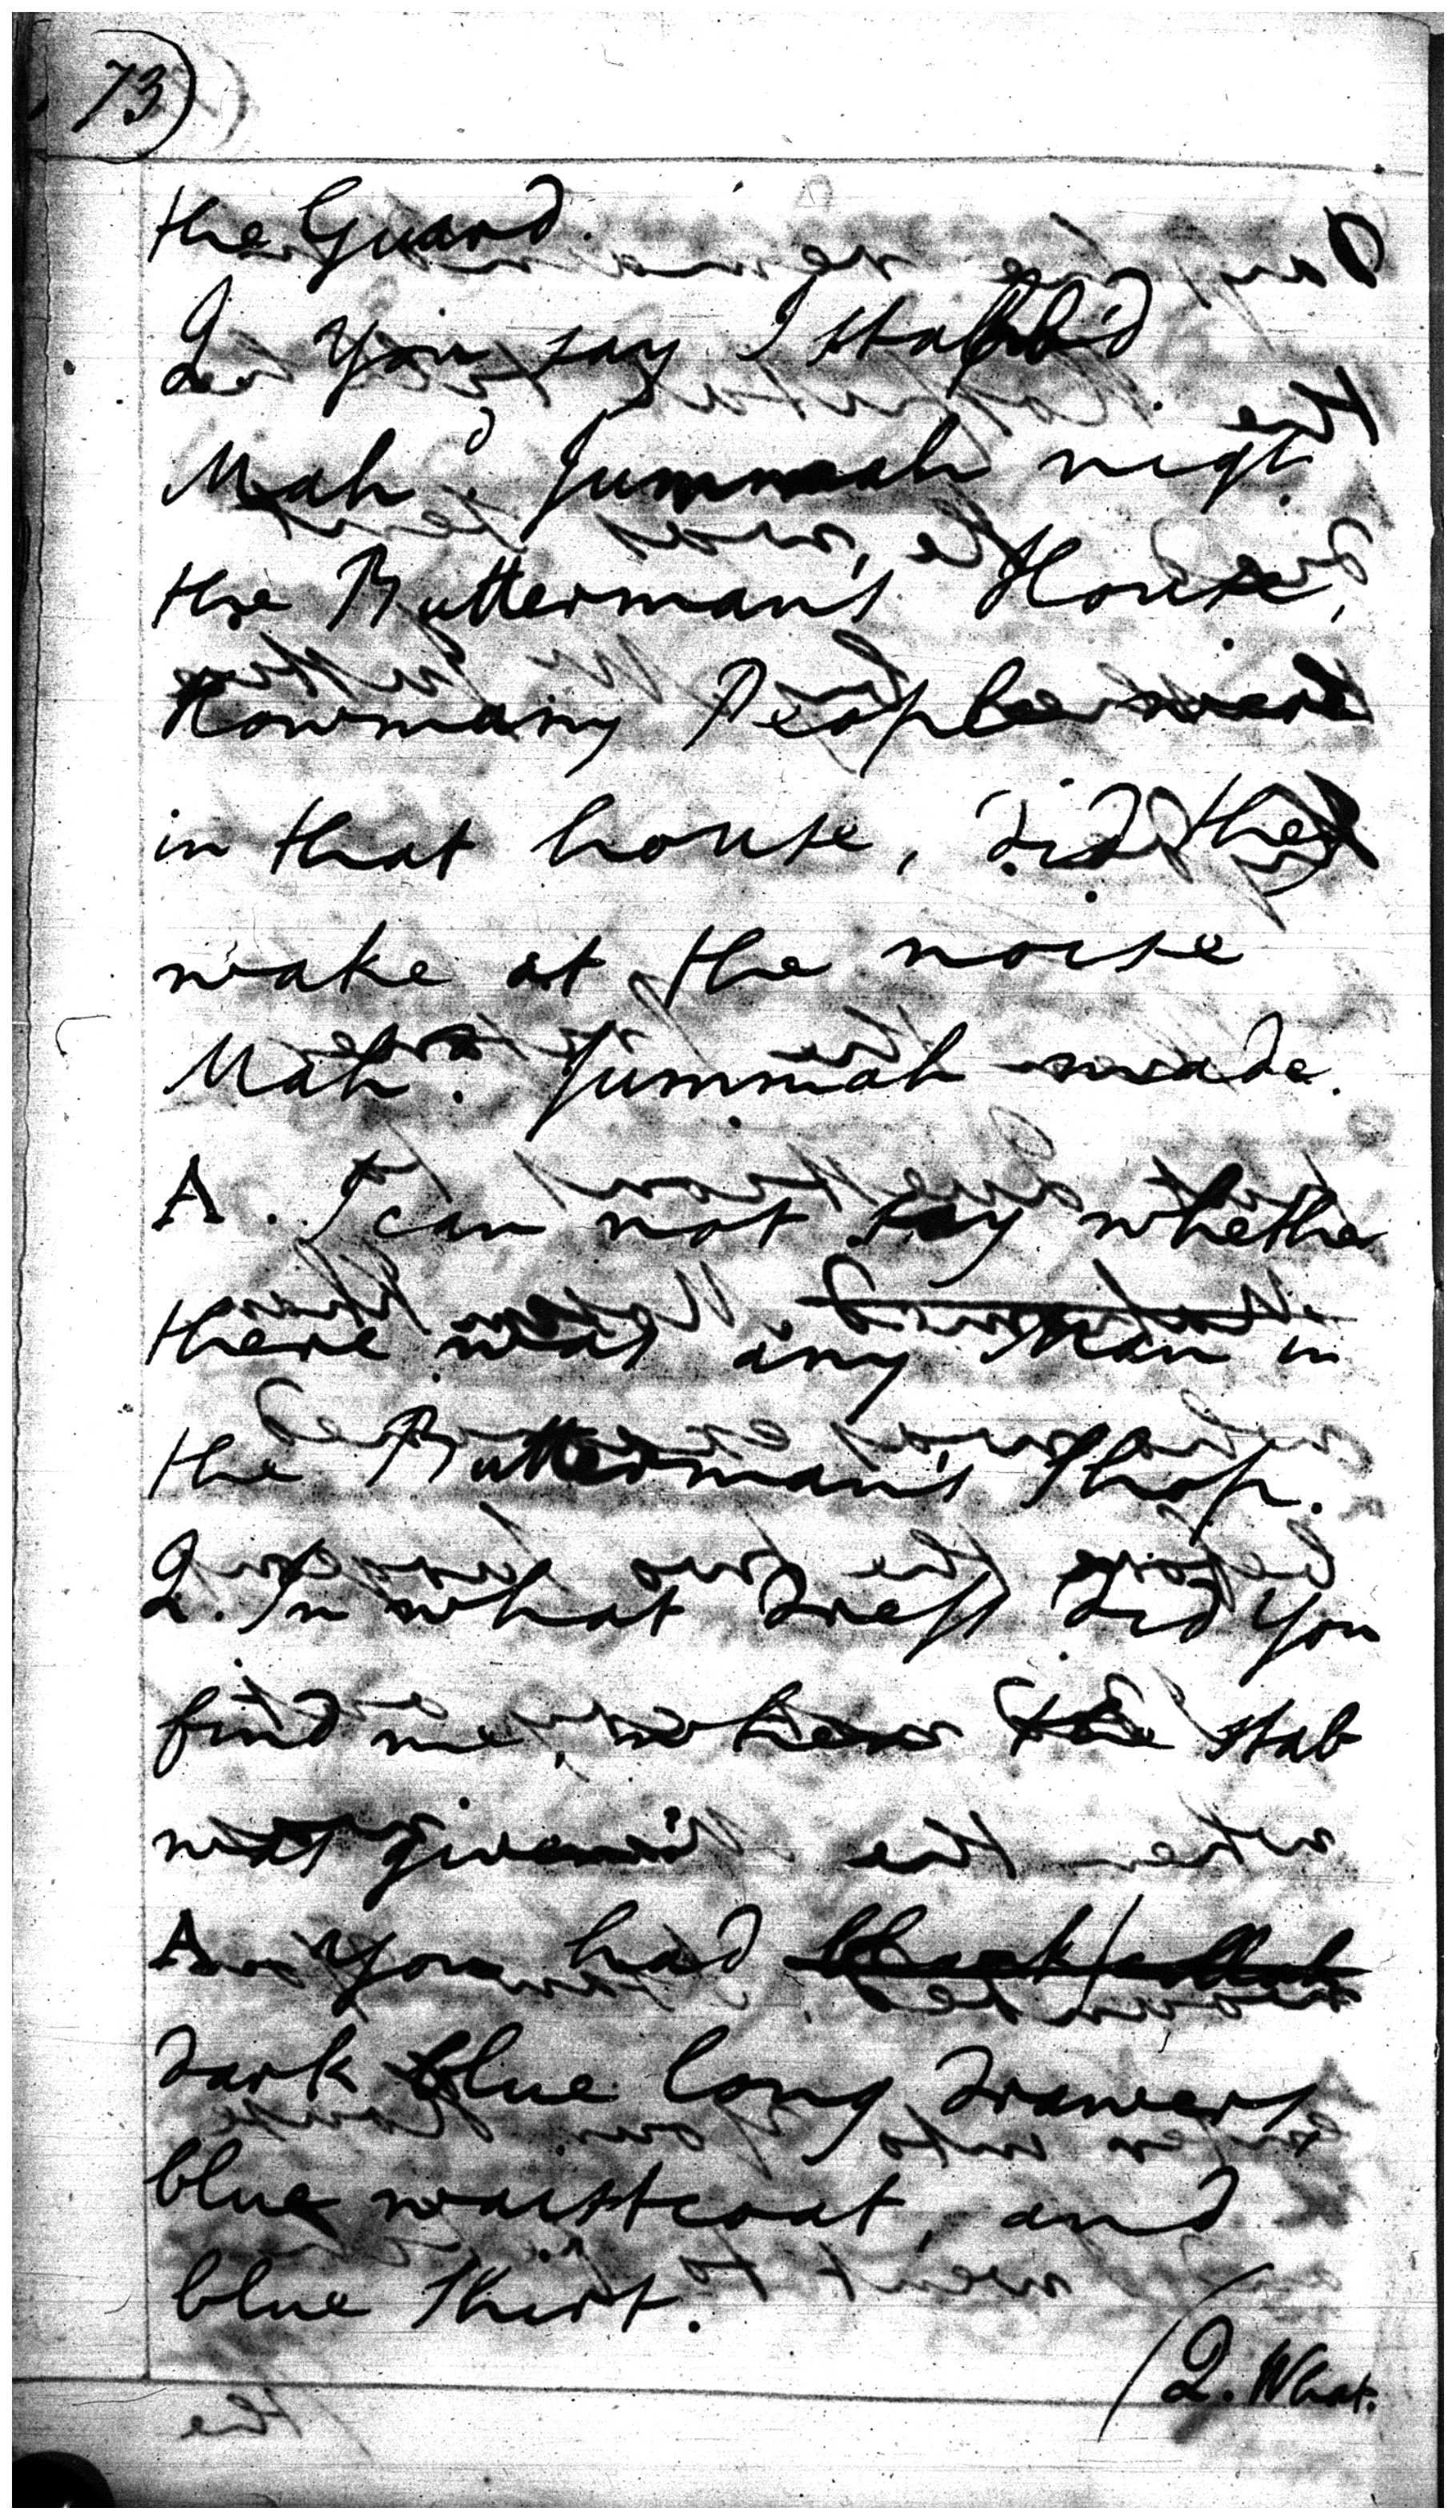 73)
the Guard.
Q You say I stabb'd
Mah.d Jummah nigt
the Butterman's House,
Howmany People were
in that house, did they
wake at the noise
Mah.d Jummah made.
A. I can not say whether
there was any Man in
the Butterman's Shop.
Q. In what dress did You
find me, when the stab
was given
A. You had
dark blue long drawers
blue waistcoat, and
blue Shirt.
(Q. What.